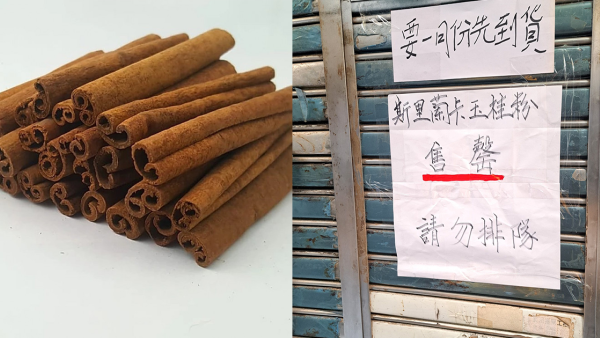 要一月份先到貨
斯里蘭卡玉桂粉
售罄
請勿排隊